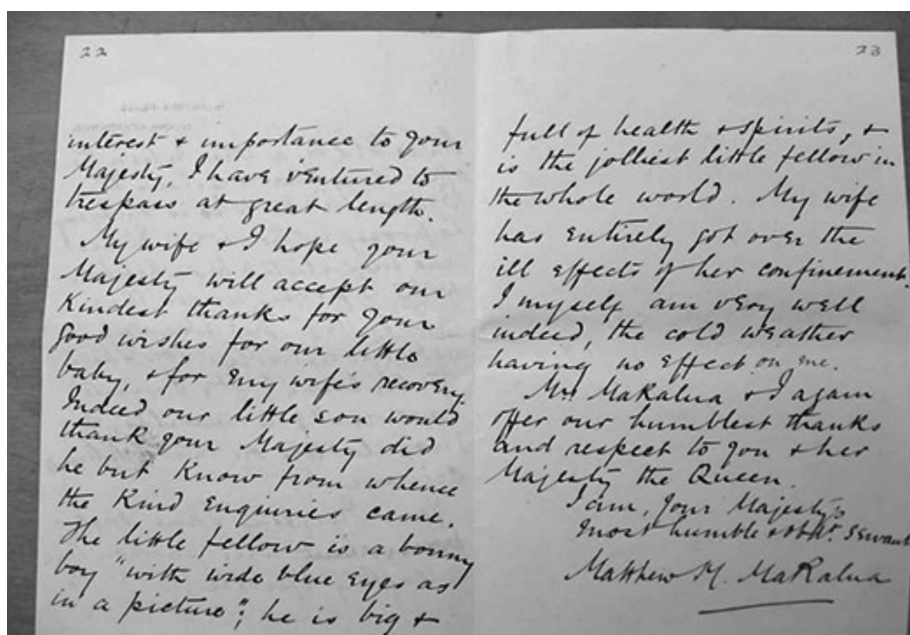 22
interest & importance to your
Majesty, I have ventured to
trespass at great length.
My wife & I hope your
Majesty will accept our
Kindest thanks for your
good wishes for our little
baby, & for my wife's recovery.
Indeed our little son would
thank your Majesty did
he but Know from whence
the Kind Enquiries came.
The little fellow is a bonny
boy "with wide blue Eyes as
in a picture"; he is big &
23
full of health & spirits, &
is the jolliest little fellow in
the whole world. My wife
has Entirely got over the
ill Effects of her confinement.
I myself am very well
indeed, the cold weather
having no effect on me.
Mrs Makalua & I again
offer our humblest thanks
and respect to you & her
Majesty the Queen.
I am, Your Majesty's
most humble & obdt. servant
Matthew M. Makalua